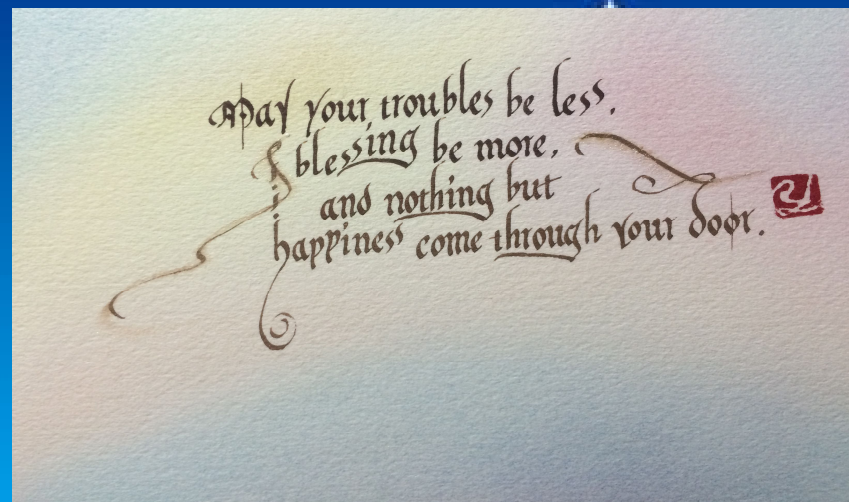 May your troubles be less,
blessing be more,
and nothing but
happiness come through your door.